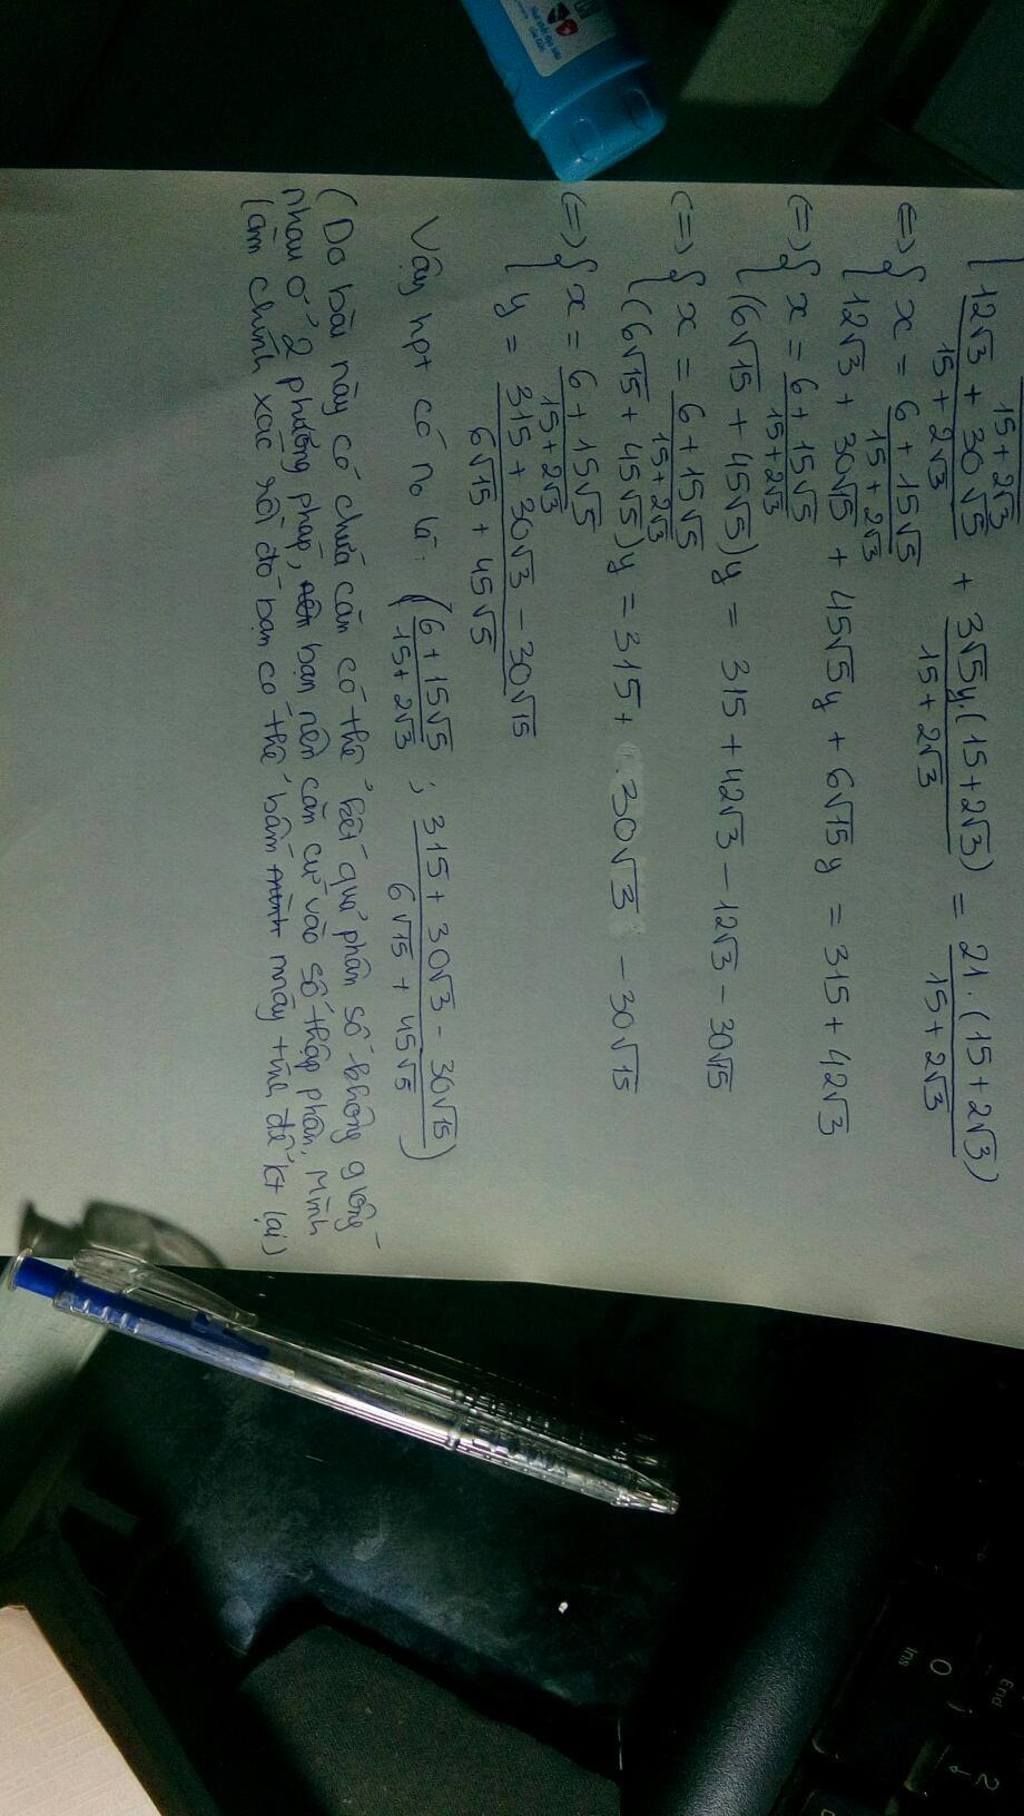 15 + 2√3
{ (12√3 + 30√5)/(15 + 2√3) + (3√5y.(15+2√3))/(15 + 2√3) = (21.(15+2√3))/(15 + 2√3)
(=) { x = (6 + 15√5)/(15 + 2√3)
12√3 + 30√5 + 45√5y + 6√15y = 315 + 42√3
(=) { x = (6 + 15√5)/(15 + 2√3)
(6√15 + 45√5)y = 315 + 42√3 - 12√3 - 30√15
(=) { x = (6 + 15√5)/(15 + 2√3)
(6√15 + 45√5)y = 315 + 30√3 - 30√15
(=) { x = (6 + 15√5)/(15 + 2√3)
y = (315 + 30√3 - 30√15)/(6√15 + 45√5)
Vậy hpt có no là: ((6 + 15√5)/(15 + 2√3) ; (315 + 30√3 - 30√15)/(6√15 + 45√5))
(Do bài này có chứa căn có thể kết quả phân số không giống
nhau ở 2 phương pháp, bạn nên căn cứ vào số thập phân, Mình
làm chính xác rồi đó bạn có thể bấm máy tính để kt lại)
0
Ins
End
2